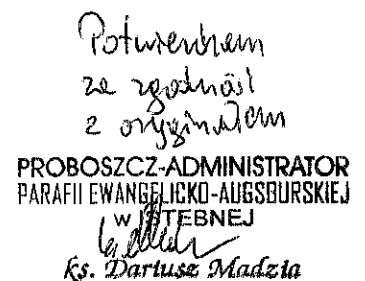 Potwierdzam
za zgodność
z oryginałem
PROBOSZCZ-ADMINISTRATOR
PARAFII EWANGELICKO-AUGSBURSKIEJ
W ISTEBNEJ
ks. Dariusz Madzia